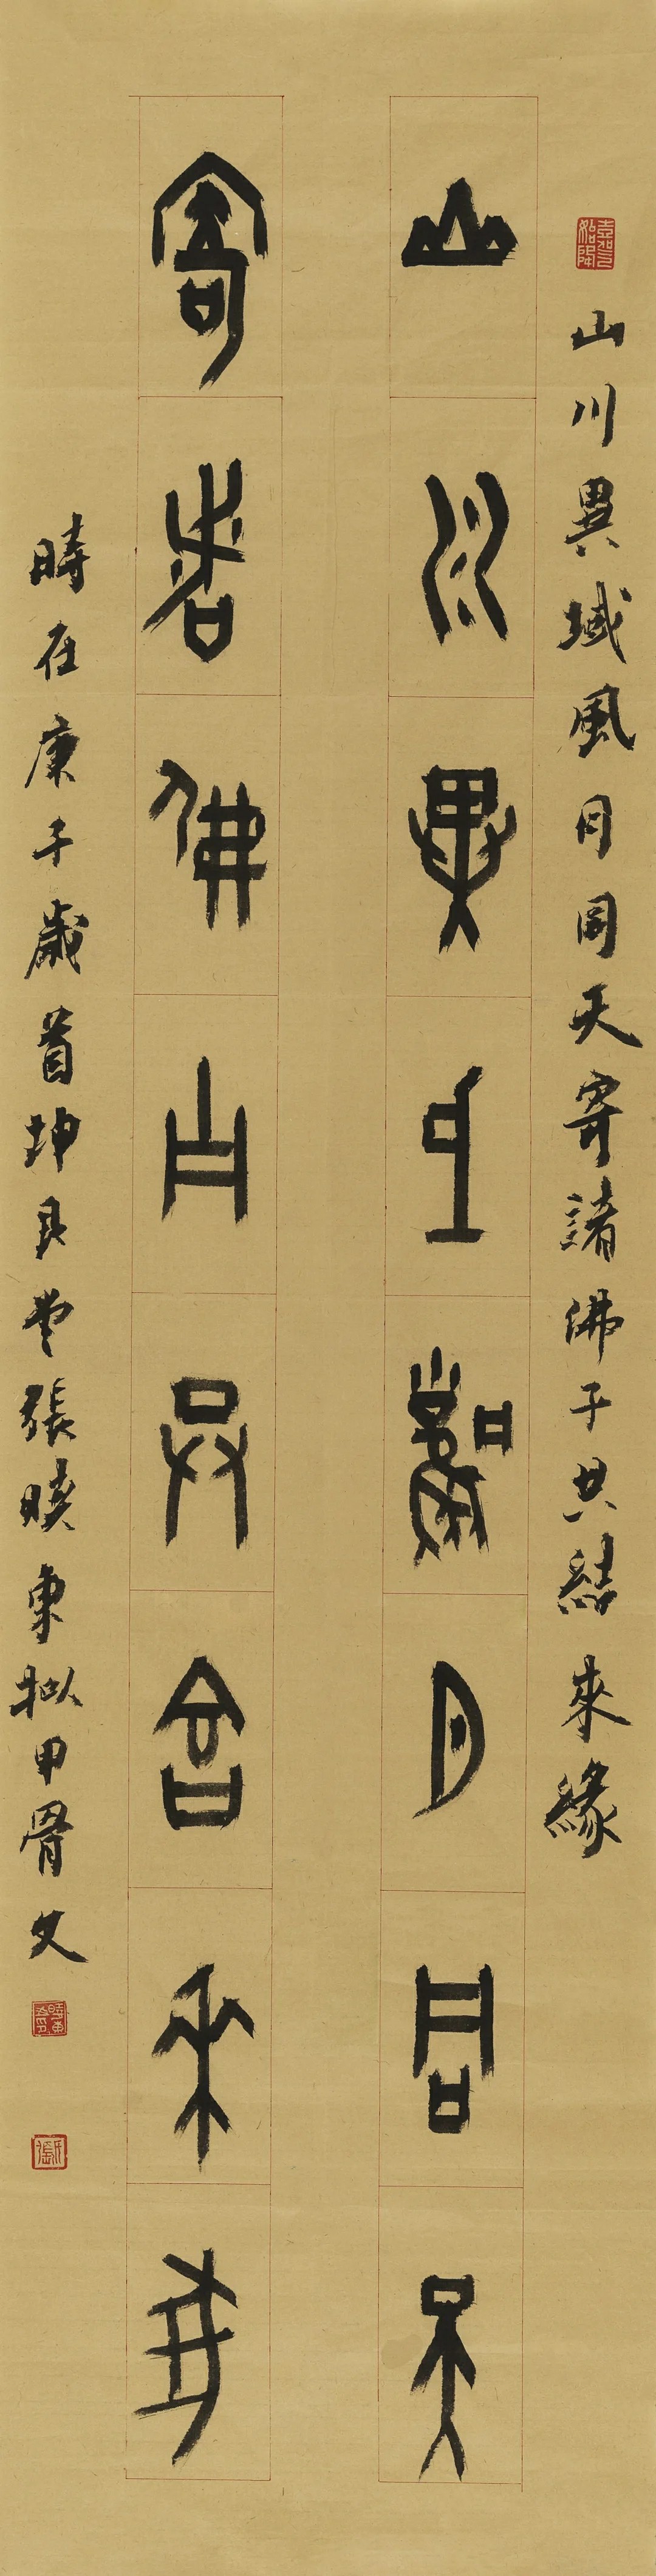 山川異域風月同天寄諸佛子共結來緣
山川異域風月同天
寄諸佛子共合來緣
時在庚子歲首坤良堂張曉東擬甲骨文